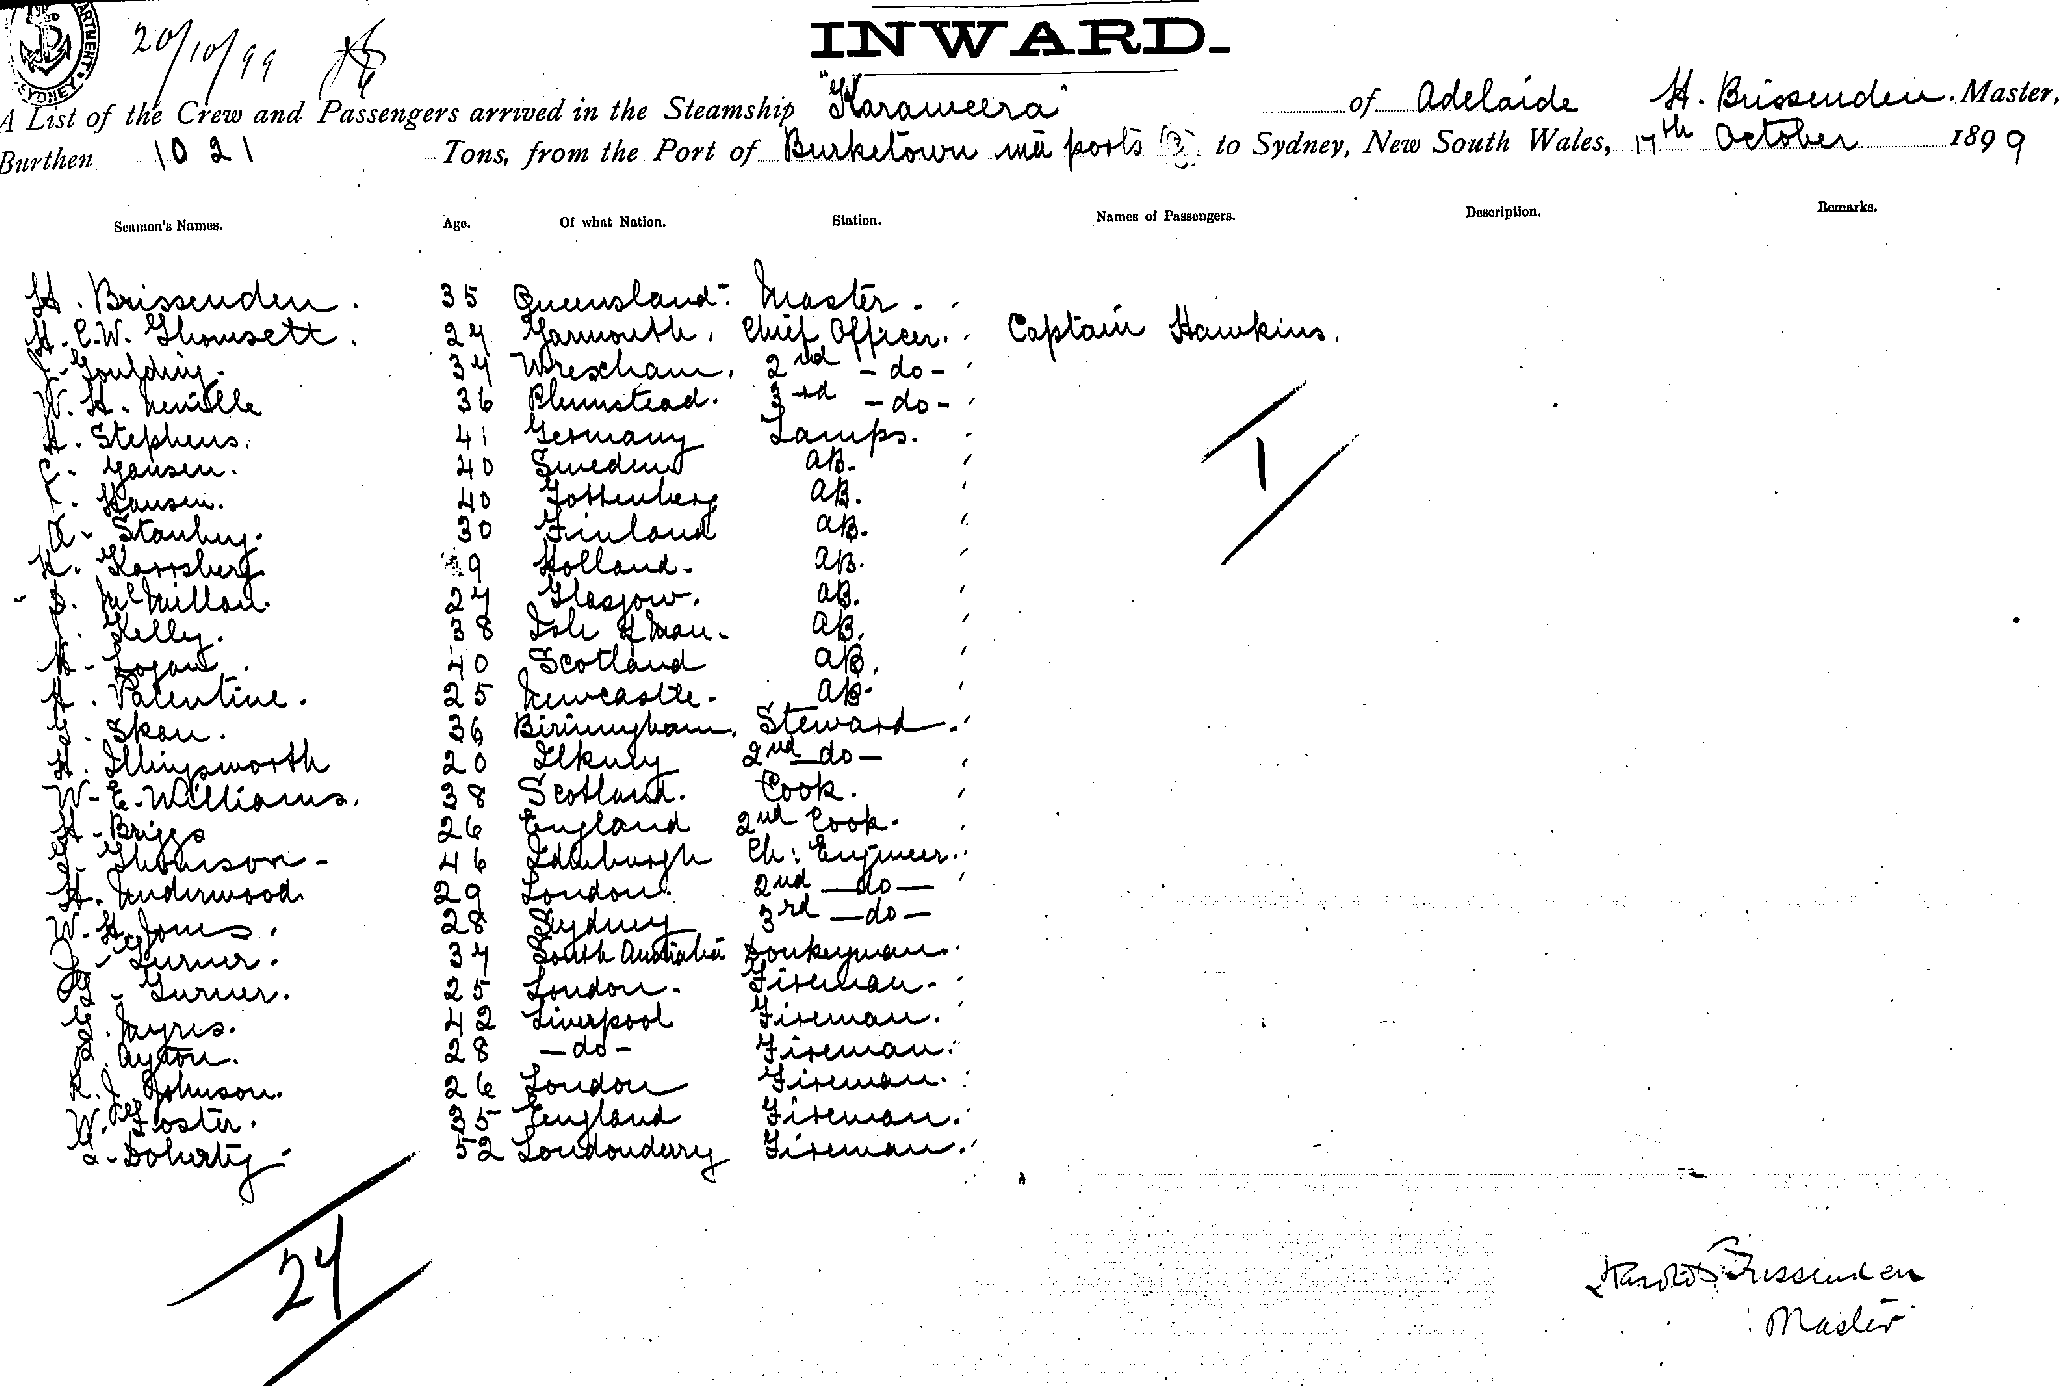 20/10/99
INWARD.
A List of the Crew and Passengers arrived in the Steamship "Karaweera" of Adelaide H. Brissenden. Master,
Burthen 1021 Tons, from the Port of Burketown via ports to Sydney, New South Wales, 17th October 1899
Seamen's Names. Age. Of what Nation. Station. Names of Passengers. Description. Remarks.
H. Brissenden. 35 Queensland. Master.
H. C. W. Thomsett. 24 Yarmouth. Chief Officer. Captain Hawkins.
Goulding. 34 Wrexham. 2nd -do-
W. H. Neville 36 Plumstead. 3rd -do-
H. Stephens. 41 Germany Lamps.
Jansen. 40 Sweden AB.
Hansen. 40 Gottenberg AB.
A. Stanbey. 30 Finland AB.
K. 9 Holland. AB.
McMillan. 24 Glasgow. AB.
Kelly. 38 Isle of Man. AB.
Logan. 40 Scotland AB.
H. Valentine. 25 Newcastle. AB.
Skan. 36 Birimgham. Steward.
H. Illingsworth 20 Ilkuly 2nd -do-
W. E. Williams. 38 Scotland. Cook.
H. Briggs 26 England 2nd Cook.
G. Thomson - 46 Edinburgh Ch: Engineer.
H. Underwood. 29 London. 2nd -do-
W. H. Jones. 28 Sydney 3rd -do-
J. Turner. 34 South Australia Donkeyman.
Turner. 25 London. Fireman.
G. 42 Liverpool Fireman.
Ayton. 28 -do- Fireman.
R. J. Johnson. 26 London Fireman.
W. Foster. 35 England Fireman.
G. Doherty. 52 Londonderry Fireman.
1
24
Harold Brissenden
Master